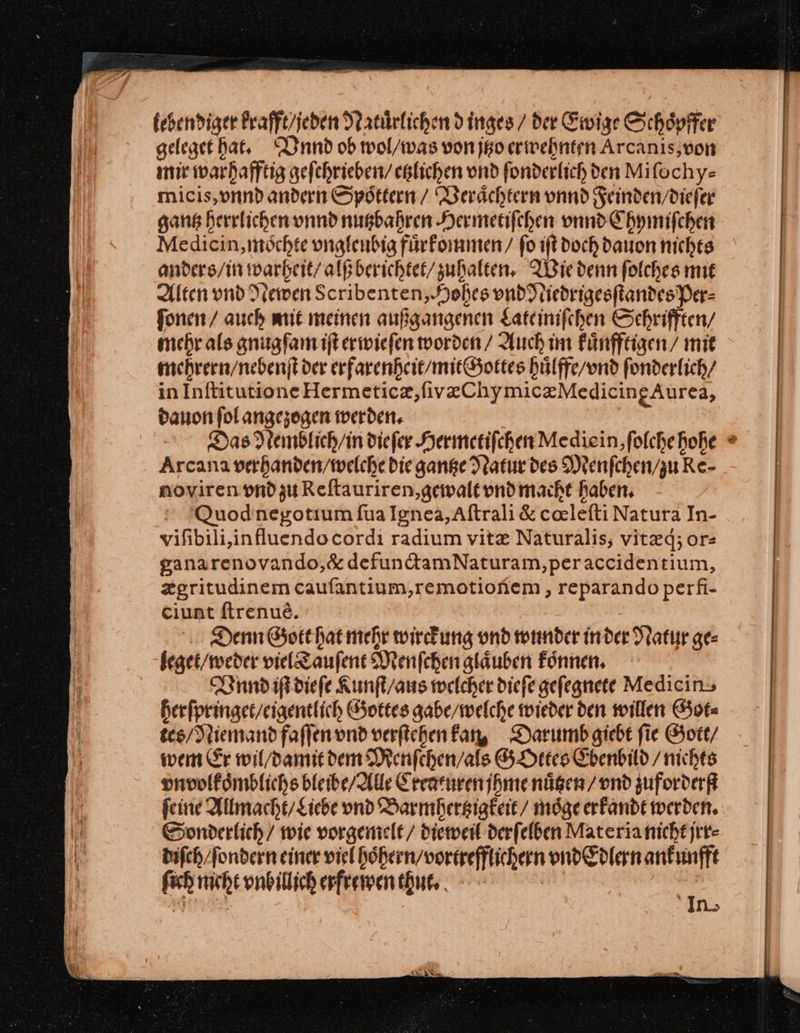 lebendiger krafft/jeden Natuͤrlichen dinges / der Ewige Schoͤpffer
geleget hat. Vnnd ob wol/was von jtzo erwehnten Arcanis,von
mir warhafftig geſchrieben/ etzlichen vnd ſonderlich den Miſochy⸗
micis,vnnd andern Spoͤttern / Veraͤchtern vnnd Feinden/dieſer
gantz herrlichen vnnd nutzbahren Hermetiſchen vnnd Chymiſchen
Medicin,moͤchte vngleubig fuͤrkommen / ſo iſt doch dauon nichts
anders/in warheit/ alß berichtet/ zuhalten. Wie denn ſolches mit
Alten vnd Newen Scribenten, Hohes vnd Niedriges ſtandes Per⸗
ſonen / auch mit meinen außgangenen Lateiniſchen Schrifften/
mehr als gnugſam iſt erwieſen worden / Auch im kuͤnfftigen / mit
mehrern/nebenſt der erfarenheit/mit Gottes huͤlffe/vnd ſonderlich/
in Inſtitutione Hermeticæ,ſivæ Chymicæ Medicinę Aurea,
dauon ſol angezogen werden.
Das Nemblich/in dieſer Hermetiſchen Medicin,ſolche hohe
Arcana verhanden/welche die gantze Natur des Menſchen/zu Re-
noviren vnd zu Reſtauriren,gewalt vnd macht haben.
Quod negotium ſua Ignea, Aſtrali & cœleſti Natura In-
viſibili,influendo cordi radium vitæ Naturalis, vitæq; or⸗
gana renovando,& defunctam Naturam,per accidentium,
ægritudinem cauſantium,remotionem , reparando perfi-
ciunt ſtrenuè.
Denn Gott hat mehr wirckung vnd wunder in der Natur ge⸗
leget/weder viel Tauſent Menſchen glaͤuben koͤnnen.
Vnnd iſt dieſe Kunſt/aus welcher dieſe geſegnete Medicin
herſpringet/eigentlich Gottes gabe/welche wieder den willen Got⸗
tes/Niemand faſſen vnd verſtehen kan, Darumb giebt ſie Gott/
wem Er wil/damit dem Menſchen/als GOttes Ebenbild / nichts
vnvolkoͤmblichs bleibe/Alle Creaturen jhme nuͤtzen / vnd zuforderſt
ſeine Allmacht/Liebe vnd Barmhertzigkeit / moͤge erkandt werden.
Sonderlich / wie vorgemelt / dieweil derſelben Materia nicht jrr⸗
diſch/ſondern einer viel hoͤhern/vortrefflichern vnd Edlern ankunfft
ſich nicht vnbillich erfrewen thut.
In